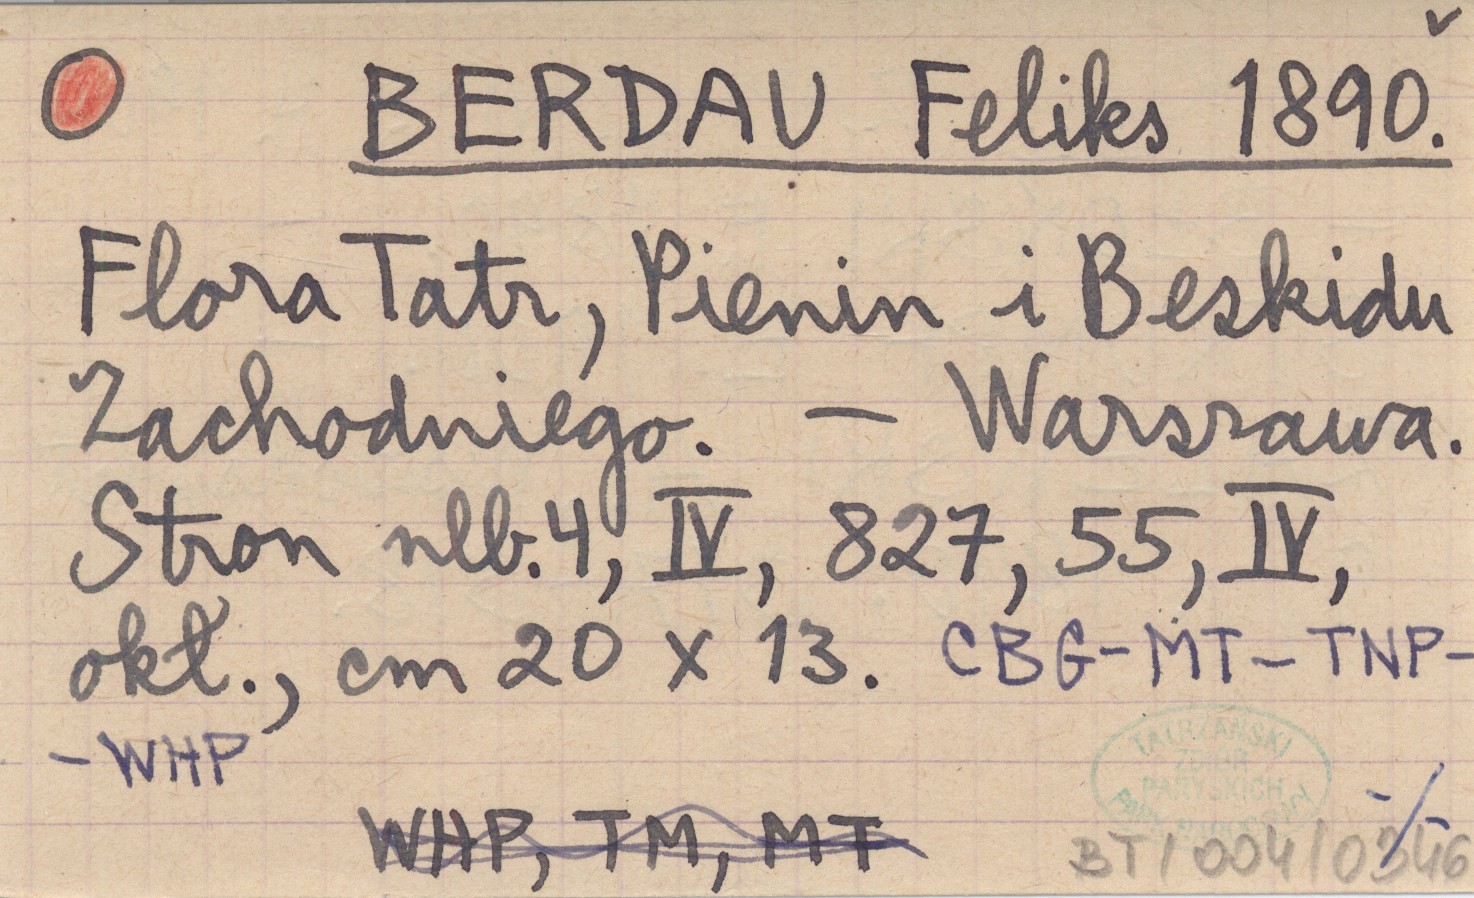 BERDAU Feliks 1890.
Flora Tatr, Pienin i Beskidu
Zachodniego. — Warszawa.
Stron nlb. 4, IV, 827, 55, IV,
okł., cm 20 x 13. CBG-MT-TNP-
-WHP
TATRZAŃSKI
ZBIÓR
PARYSKICH
PARK NARODOWY
WHP, TM, MT
BT/004/0346